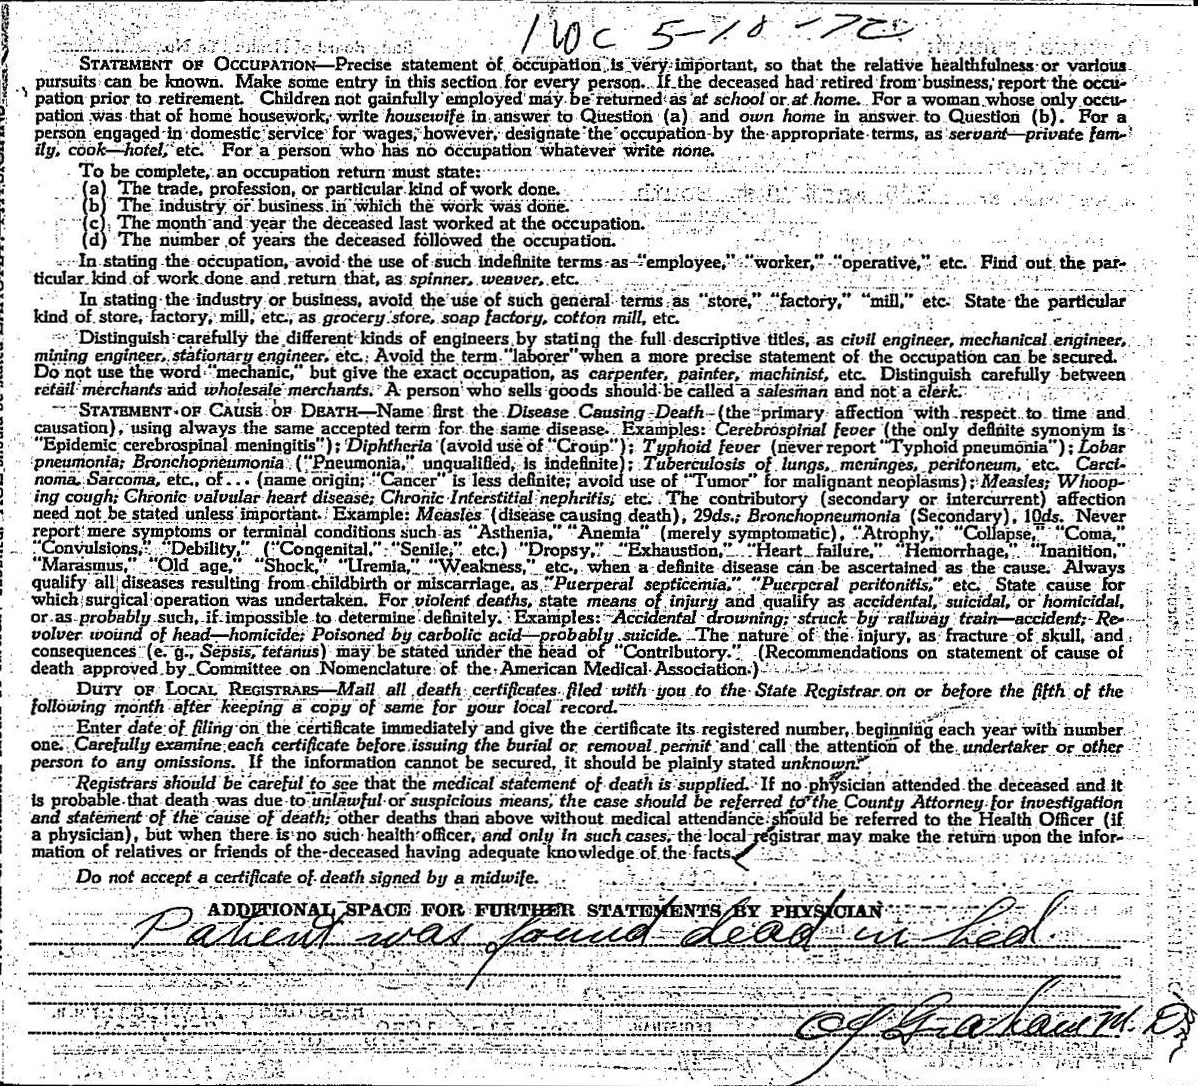 5-18-72
STATEMENT OF OCCUPATION—Precise statement of occupation is very important, so that the relative healthfulness or various
pursuits can be known. Make some entry in this section for every person. If the deceased had retired from business, report the occu-
pation prior to retirement. Children not gainfully employed may be returned as at school or at home. For a woman whose only occu-
pation was that of home housework, write housewife in answer to Question (a) and own home in answer to Question (b). For a
person engaged in domestic service for wages, however, designate the occupation by the appropriate terms, as servant—private fam-
ily, cook—hotel, etc. For a person who has no occupation whatever write none.
To be complete, an occupation return must state:
(a) The trade, profession, or particular kind of work done.
(b) The industry or business in which the work was done.
(c) The month and year the deceased last worked at the occupation.
(d) The number of years the deceased followed the occupation.
In stating the occupation, avoid the use of such indefinite terms as "employee," "worker," "operative," etc. Find out the par-
ticular kind of work done and return that, as spinner, weaver, etc.
In stating the industry or business, avoid the use of such general terms as "store," "factory," "mill," etc. State the particular
kind of store, factory, mill, etc., as grocery store, soap factory, cotton mill, etc.
Distinguish carefully the different kinds of engineers by stating the full descriptive titles, as civil engineer, mechanical engineer,
mining engineer, stationary engineer, etc. Avoid the term "laborer" when a more precise statement of the occupation can be secured.
Do not use the word "mechanic," but give the exact occupation, as carpenter, painter, machinist, etc. Distinguish carefully between
retail merchants and wholesale merchants. A person who sells goods should be called a salesman and not a clerk.
STATEMENT OF CAUSE OF DEATH—Name first the Disease Causing Death (the primary affection with respect to time and
causation), using always the same accepted term for the same disease. Examples: Cerebrospinal fever (the only definite synonym is
"Epidemic cerebrospinal meningitis"); Diphtheria (avoid use of "Croup"); Typhoid fever (never report "Typhoid pneumonia"); Lobar
pneumonia; Bronchopneumonia ("Pneumonia," unqualified, is indefinite); Tuberculosis of lungs, meninges, peritoneum, etc. Carci-
noma, Sarcoma, etc., of... (name origin; "Cancer" is less definite; avoid use of "Tumor" for malignant neoplasms); Measles; Whoop-
ing cough; Chronic valvular heart disease; Chronic Interstitial nephritis, etc. The contributory (secondary or intercurrent) affection
need not be stated unless important. Example: Measles (disease causing death), 29ds.; Bronchopneumonia (Secondary), 10ds. Never
report mere symptoms or terminal conditions such as "Asthenia," "Anemia" (merely symptomatic), "Atrophy," "Collapse," "Coma,"
"Convulsions," "Debility," ("Congenital," "Senile," etc.) "Dropsy," "Exhaustion," "Heart failure," "Hemorrhage," "Inanition,"
"Marasmus," "Old age," "Shock," "Uremia," "Weakness," etc., when a definite disease can be ascertained as the cause. Always
qualify all diseases resulting from childbirth or miscarriage, as "Puerperal septicemia," "Puerperal peritonitis," etc. State cause for
which surgical operation was undertaken. For violent deaths, state means of injury and qualify as accidental, suicidal, or homicidal,
or as probably such, if impossible to determine definitely. Examples: Accidental drowning; struck by railway train—accident; Re-
volver wound of head—homicide; Poisoned by carbolic acid—probably suicide. The nature of the injury, as fracture of skull, and
consequences (e. g., Sepsis, tetanus) may be stated under the head of "Contributory." (Recommendations on statement of cause of
death approved by Committee on Nomenclature of the American Medical Association.)
DUTY OF LOCAL REGISTRARS—Mail all death certificates filed with you to the State Registrar on or before the fifth of the
following month after keeping a copy of same for your local record.
Enter date of filing on the certificate immediately and give the certificate its registered number, beginning each year with number
one. Carefully examine each certificate before issuing the burial or removal permit and call the attention of the undertaker or other
person to any omissions. If the information cannot be secured, it should be plainly stated unknown.
Registrars should be careful to see that the medical statement of death is supplied. If no physician attended the deceased and it
is probable that death was due to unlawful or suspicious means, the case should be referred to the County Attorney for investigation
and statement of the cause of death; other deaths than above without medical attendance should be referred to the Health Officer (if
a physician), but when there is no such health officer, and only in such cases, the local registrar may make the return upon the infor-
mation of relatives or friends of the deceased having adequate knowledge of the facts.
Do not accept a certificate of death signed by a midwife.
ADDITIONAL SPACE FOR FURTHER STATEMENTS BY PHYSICIAN
Patient was found dead in bed.
Graham M. D.